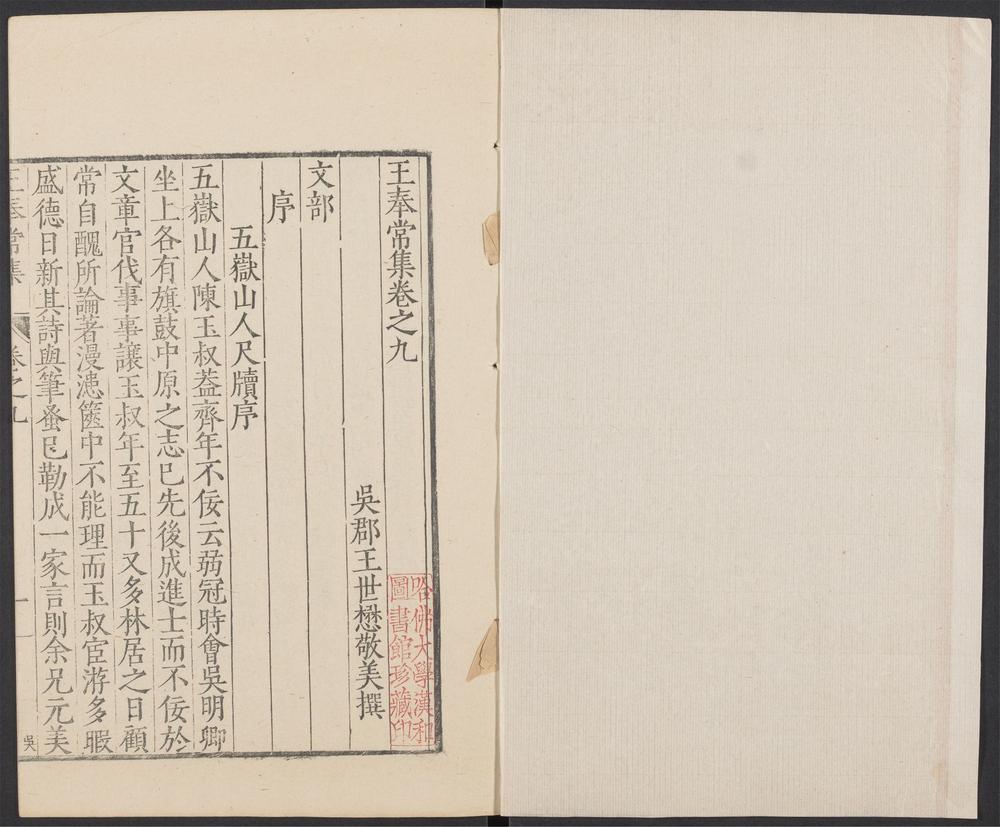 王奉常集卷之九
吳郡王世懋敬美撰
文部
序
五嶽山人尺牘序
五嶽山人陳玉叔蓋齊年不佞云弱冠時會吳明卿
坐上各有旗鼓中原之志已先後成進士而不佞於
文章官伐事事讓玉叔年至五十又多林居之日顧
常自醜所論著漫漶篋中不能理而玉叔宦游多暇
盛德日新其詩與筆蚤已勒成一家言則余兄元美
王奉常集
卷之九
一
吳
哈佛大學漢和
圖書館珍藏印